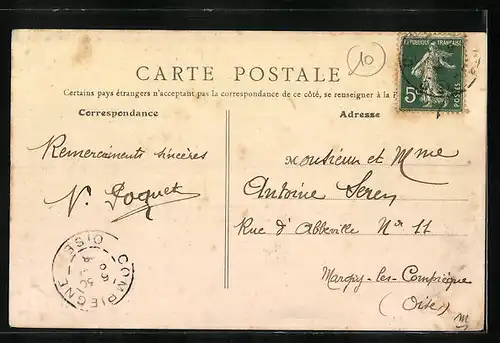 10
REPUBLIQUE FRANÇAISE
5c
POSTES
CARTE POSTALE
Certains pays étrangers n'acceptant pas la correspondance de ce côté, se renseigner à la
Correspondance
Adresse
Remerciements sincères
Monsieur et Mme
Antoine
Rue d'Abbeville No 11
Margny-les-Compiègne
(Oise)
COMPIEGNE
OISE